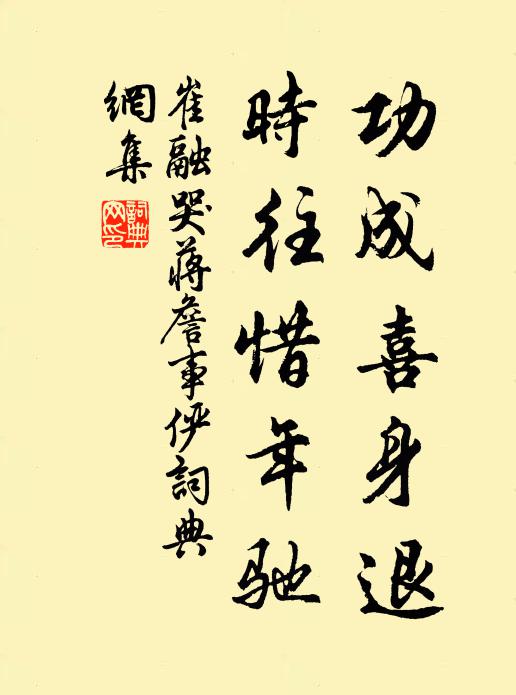 功成喜身退
時往惜年馳
崔融哭蔣詹事俨詞典
網集
詞典
网印